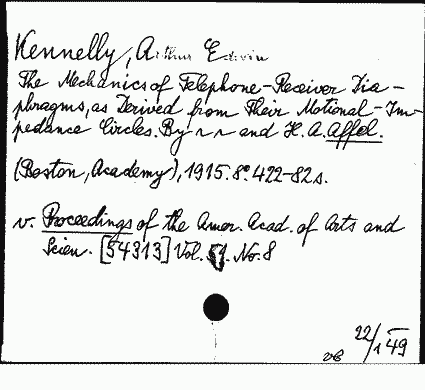 Kennelly, Arthur Edwin
The Mechanics of Telephone-Receiver Dia-
phragms, as Derived from Their Motional-Im-
pedance Circles. By ~ ~ and H. A. Affel.
(Boston, Academy), 1915. 8° 422-82 s.
v. Proceedings of the Amer. Acad. of Arts and
Scien. [54313] Vol. 51. No. 8
22/1 49